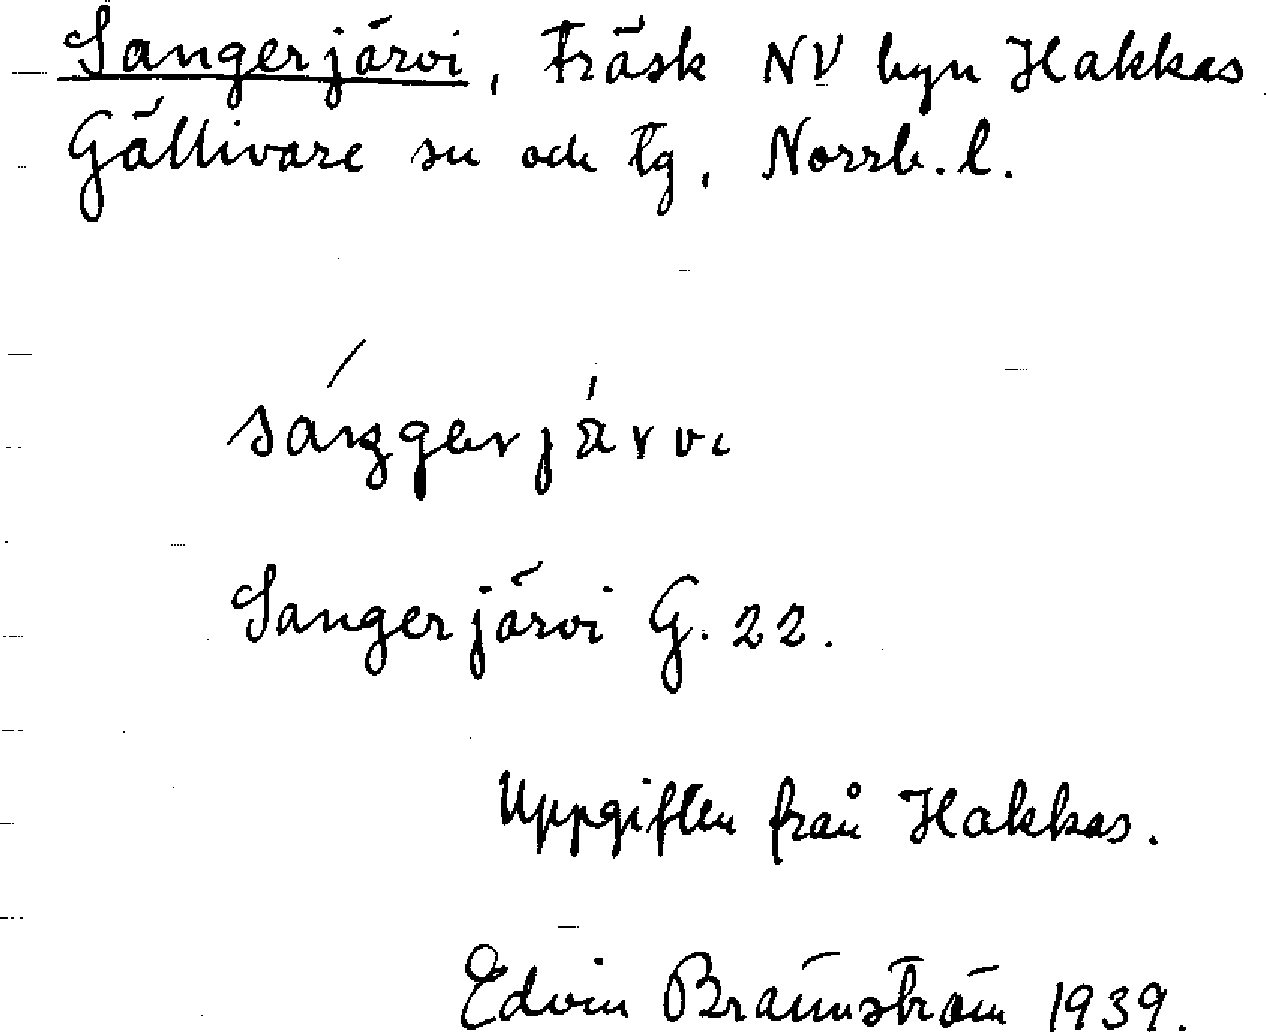 Sangerjärvi, träsk NV byn Hakkas
Gällivare sn och tg, Norrb. l.
sáŋgerjä̀rvi
Sangerjärvi G. 22.
Uppgiften från Hakkas.
Edvin Brännström 1939.